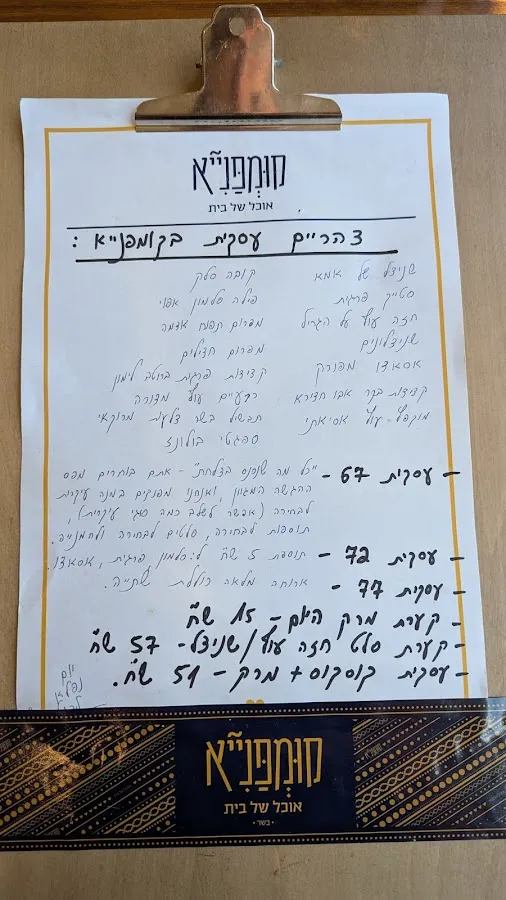 קומפניי״א
אוכל של בית
צהריים עסקית בקומפנייא :
שניצל של אמא
סטייק פרגית
חזה עוף על הגריל
שניצלונים
אסאדו מפורק
קציצות בקר אבו חצירא
מוקפץ עוף אסיאתי
קובה סלק
פילה סלמון אפוי
מפרום תפוח אדמה
מפרום חצילים
קציצות פרגית ברוטב לימון
רקעיים עוף
תבשיל בשר צלעות מרוקאי
ספגטי בולונז
– עסקית 67 – "כל מה שנכנס בצלחת" – אתם בוחרים מפס
ההגשה המגוון, ואנחנו מפנקים במנה עיקרית
לבחירה (אפשר לשלב כמה סוגי עיקרית),
תוספות לבחירה, סלטים לבחירה ולחמנייה.
– עסקית 72 – תוספת 5 ש״ח ל: סלמון, פרגית, אסאדו.
– עסקית 77 – ארוחה מלאה כוללת שתייה.
– קערת מרק היום – 15 ש״ח
– קערת סלט חזה עוף/שניצל – 57 ש״ח
– עסקית קוסקוס + מרק – 51 ש״ח.
יום
נפלא
קומפניי״א
אוכל של בית
• בשר •